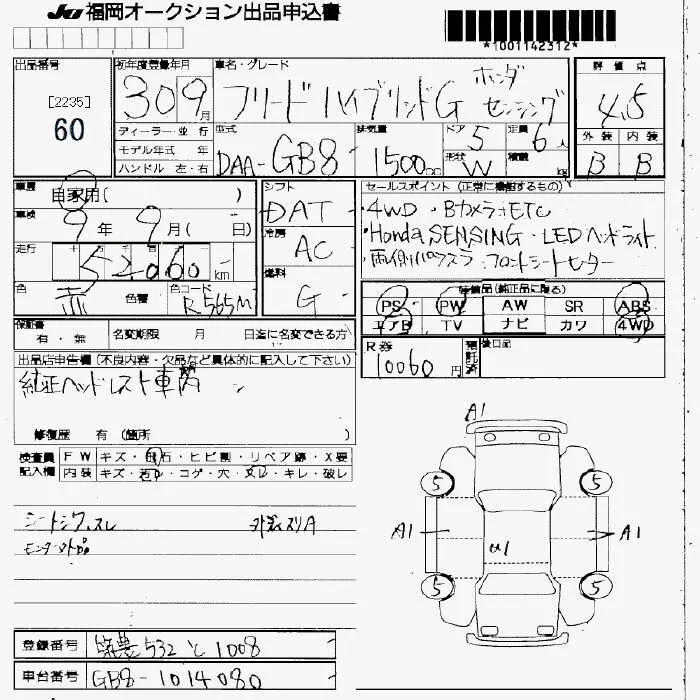 JU 福岡オークション出品申込書
*1001142312*
出品番号
[2235]
60
初年度登録年月
30 9月
車名・グレード
フリードハイブリッドG ホンダセンシング
評価点
4.5
外装 内装
B B
ディーラー・並行
モデル年式 年
ハンドル 左・右
型式
DAA-GB8
排気量
1500cc
ドア 5
形状 W
定員 6人
積載 kg
車歴
自家用( )
車検
9年 9月( 日)
走行
52060 km
色
赤
色替
色コード
R565M
シフト
DAT
冷房
AC
燃料
G
セールスポイント (正常に機能するもの)
・4WD ・Bカメラ・ETC
・Honda SENSING ・LEDヘッドライト
・両側パワスラ ・フロントシートヒーター
装備品 (純正品に限る)
PS PW AW SR ABS
エアB TV ナビ カワ 4WD
保証書
有・無
名変期限 月 日迄に名変できる方
R券
10060円
預託済
後日品
出品店申告欄 (不良内容・欠品など具体的に記入して下さい)
純正ヘッドレスト車内
修復歴 有 (箇所 )
検査員記入欄
FW キズ・飛石・ヒビ割・リペア跡・X要
内装 キズ・汚レ・コゲ・穴・スレ・キレ・破レ
シートシワ、スレ
A1
5 5
A1 A1
U1
5 5
登録番号
筑豊532 と 1008
車台番号
GB8-1014080